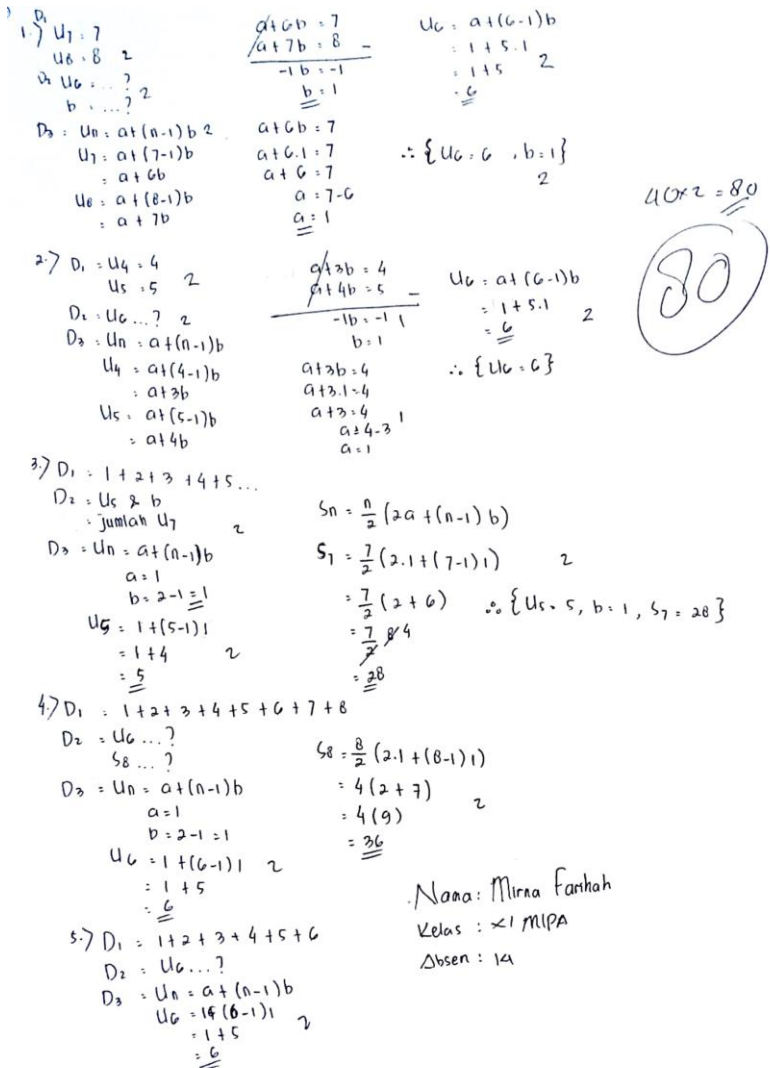 1.) D1
U7 : 7
U8 : 8 2
D2 U6 : ...?
b : ...? 2
D3 : Un : a+(n-1)b 2
U7 : a+(7-1)b
: a+6b
U8 : a+(8-1)b
: a+7b
a+6b : 7
a+7b : 8 -
-1b : -1
b : 1
a+6b : 7
a+6.1 : 7
a+6 : 7
a : 7-6
a : 1
U6 : a+(6-1)b
: 1+5.1
: 1+5 2
: 6
∴ {U6 : 6 , b : 1}
2
40×2 = 80
80
2.) D1 : U4 : 4
U5 : 5 2
D2 : U6 ...? 2
D3 : Un : a+(n-1)b
U4 : a+(4-1)b
: a+3b
U5 : a+(5-1)b
: a+4b
a+3b : 4
a+4b : 5 -
-1b : -1 1
b : 1
a+3b : 4
a+3.1 : 4
a+3 : 4
a : 4-3 1
a : 1
U6 : a+(6-1)b
: 1+5.1 2
: 6
∴ {U6 : 6}
3.) D1 : 1+2+3+4+5...
D2 : U5 & b
: jumlah U7 2
D3 : Un : a+(n-1)b
a = 1
b : 2-1 = 1
U5 : 1+(5-1)1
: 1+4 2
: 5
Sn = n/2 (2a+(n-1)b)
S7 = 7/2 (2.1+(7-1)1) 2
: 7/2 (2+6)
= 7/2 8 4
: 28
∴ {U5 = 5, b : 1, S7 = 28}
4.) D1 : 1+2+3+4+5+6+7+8
D2 = U6 ...?
S8 ...?
D3 = Un = a+(n-1)b
a = 1
b = 2-1 = 1
U6 = 1+(6-1)1 2
: 1+5
: 6
S8 = 8/2 (2.1+(8-1)1)
: 4(2+7)
: 4(9) 2
= 36
5.) D1 : 1+2+3+4+5+6
D2 : U6 ...?
D3 : Un = a+(n-1)b
U6 = 1+(6-1)1 2
= 1+5
: 6
Nama : Mirna Farihah
Kelas : XI MIPA
Absen : 14